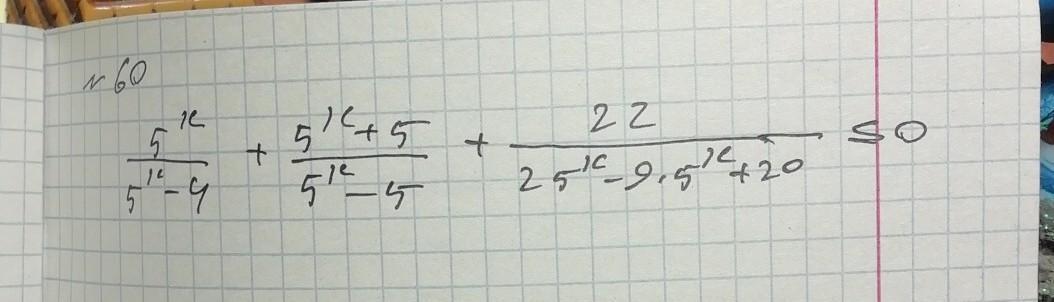 №60
\frac{5^x}{5^x-4} + \frac{5^x+5}{5^x-5} + \frac{22}{25^x-9\cdot5^x+20} ≤ 0